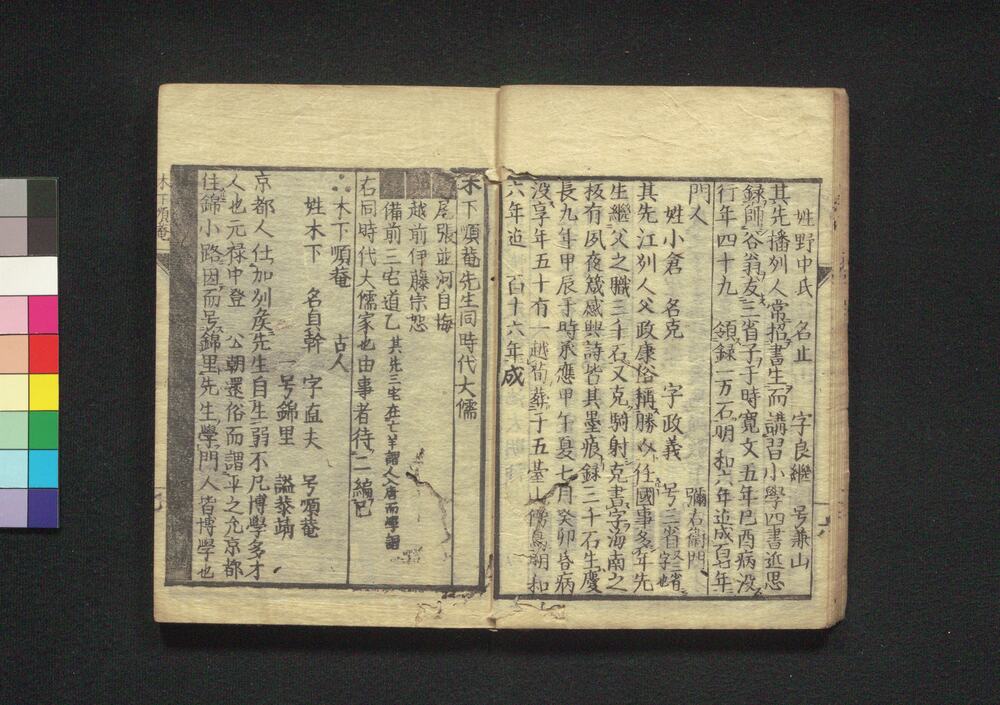 姓野中氏 名止 字良継 号兼山
其先播刕人常招書生而講習小學四書近思
録師谷翁友三省子于時寛文五年巳酉病没
行年四十九 領録一万石明和六年迄成百七年
門人 彌右衛門
姓小倉 名克 字政義 号三省 三省字也
其先江刕人父政康俗稱勝 任國事多年先
生継父之職三千石又克騎射克書字海南之
抜有夙夜 感興詩皆其墨痕録三千石生慶
長九年甲辰于時承應甲午夏七月癸卯昏病
没享年五十有一越 葬于五䑓山 鳥明和
六年迄 百十六年成
木下順菴先生同時代大儒
尾張並河自晦
越前伊藤宗恕
備前三宅道乙 其先三宅在 謂人入唐而學
右同時代大儒家也由事者待二編已
木下順菴 古人
姓木下 名自幹 字直夫 号順菴
一号錦里 謚恭靖
京都人仕加刕矦先生自生弱不凡博學多才
人也元禄中登 公朝還俗而謂平之允京都
住錦小路因而号錦里先生學門人皆博學也
木下順菴